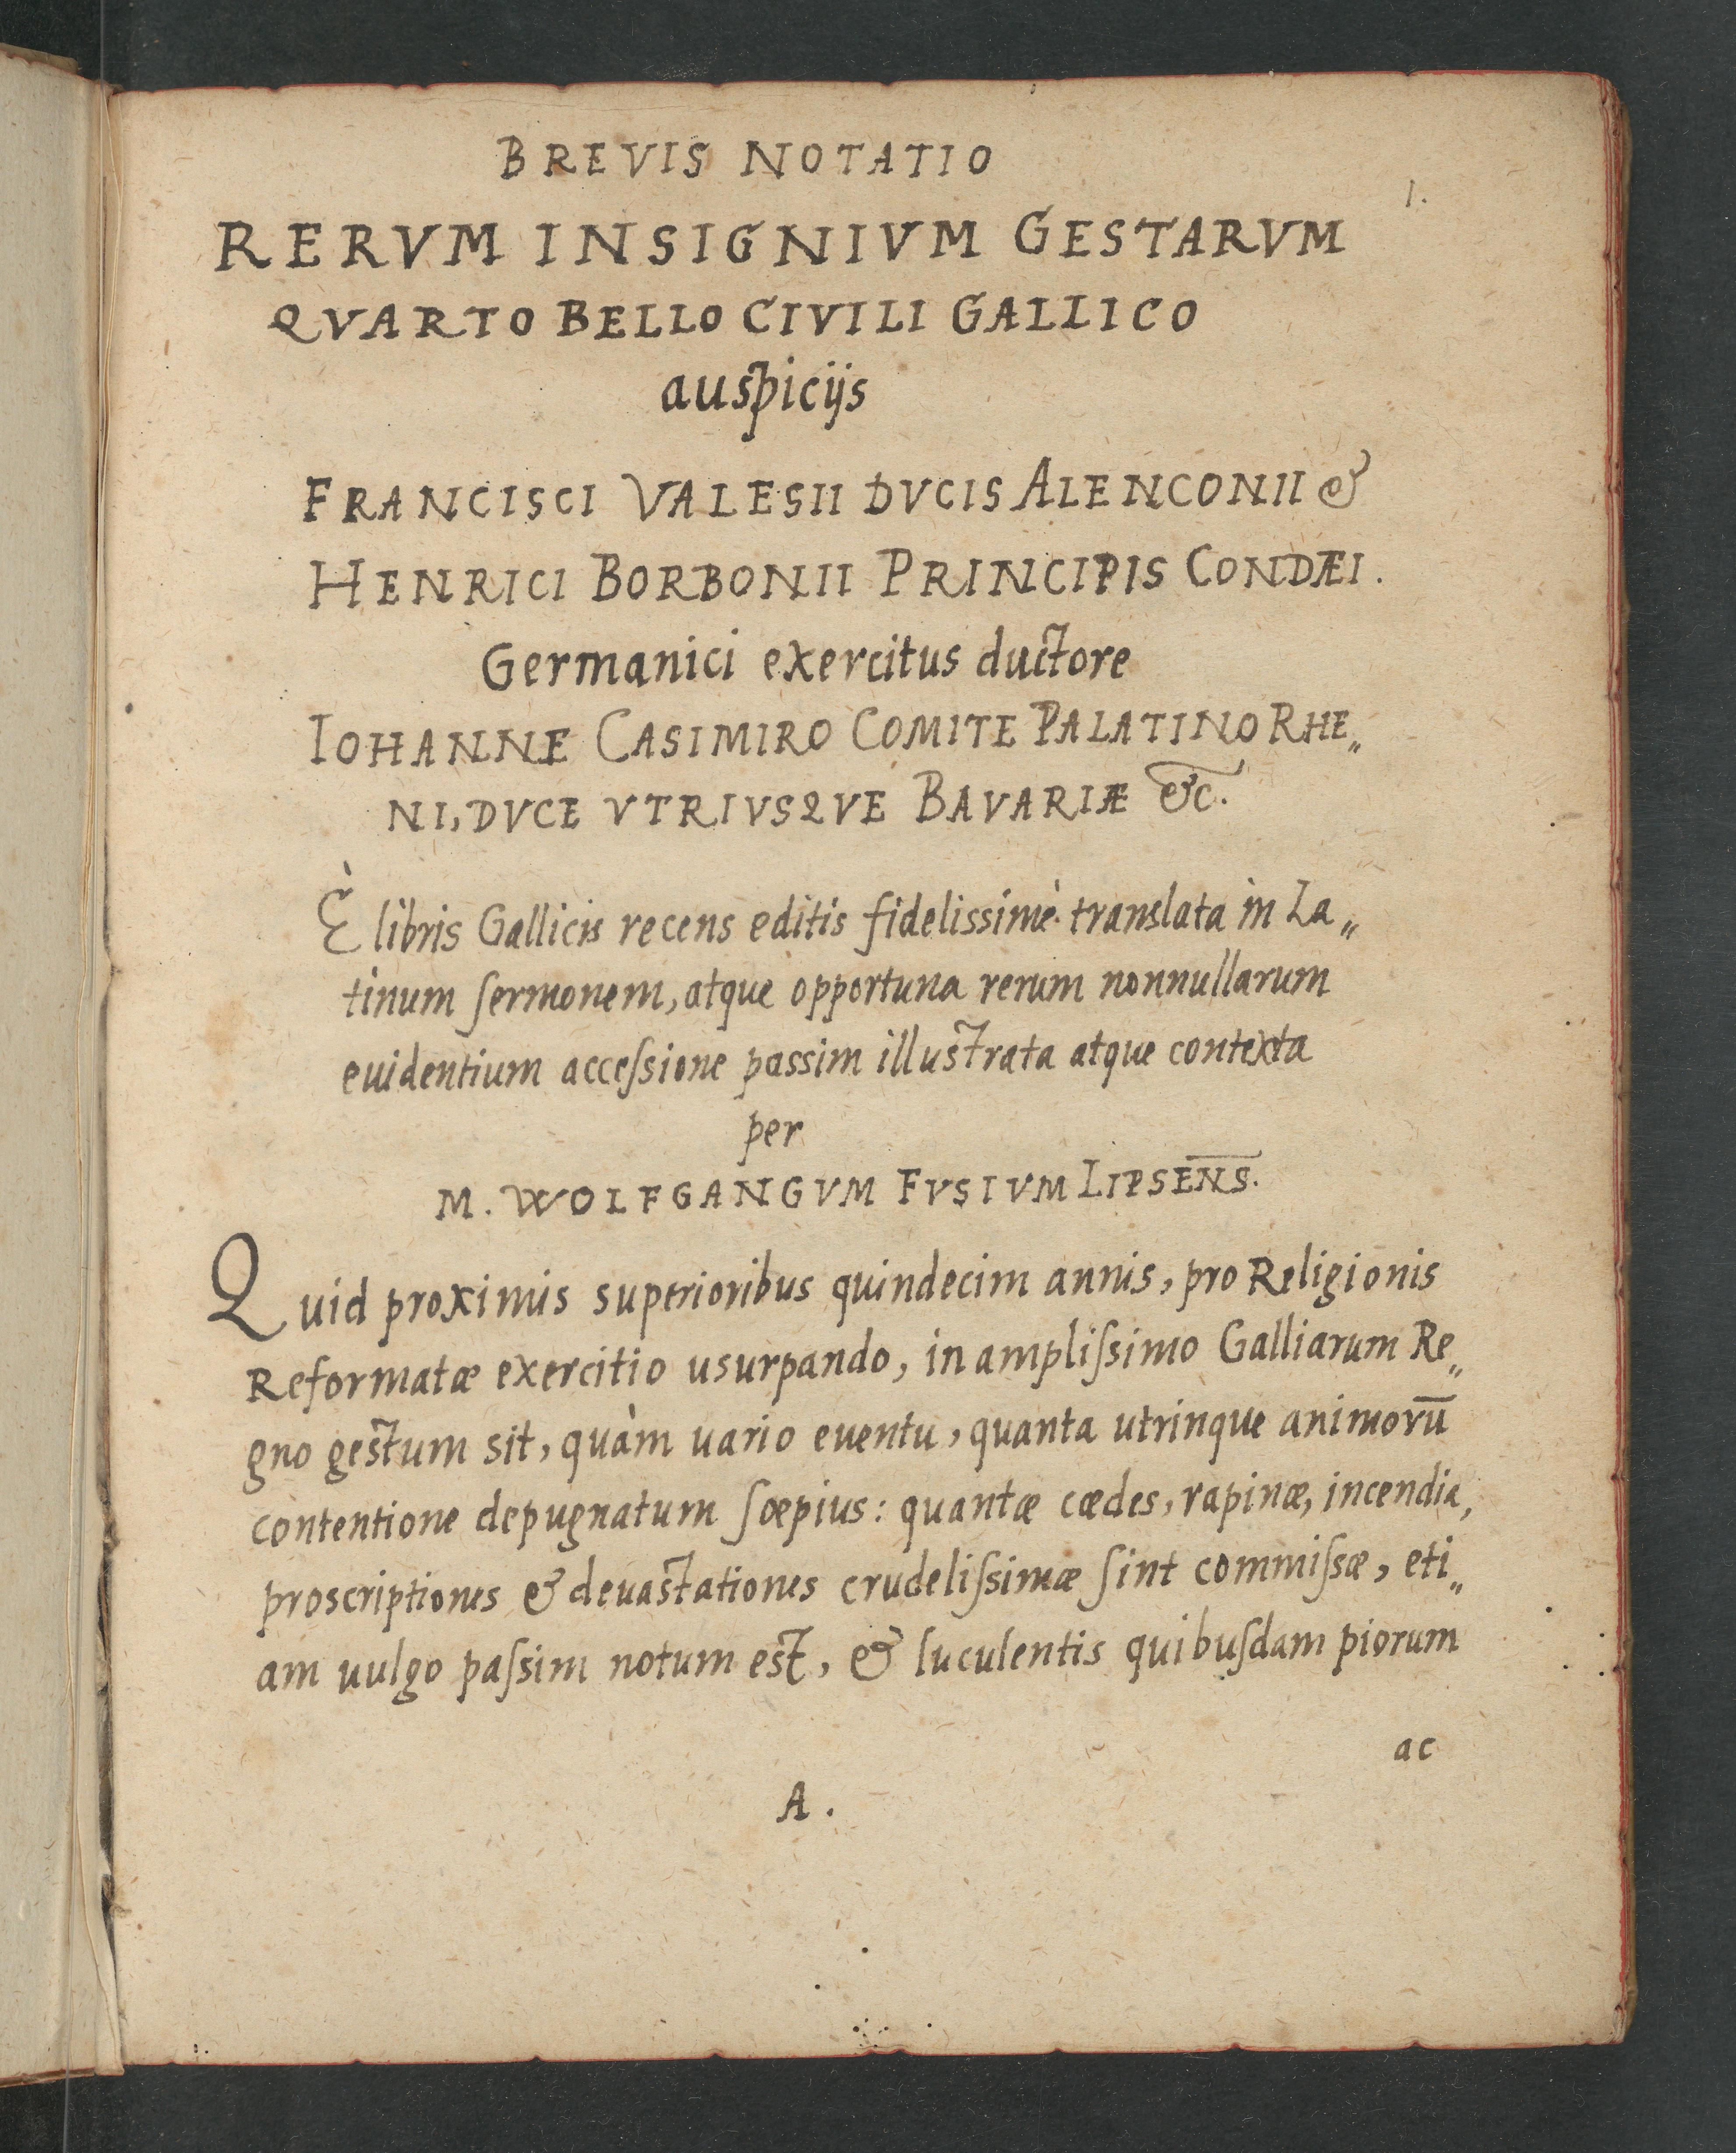 BREVIS NOTATIO
1.
RERVM INSIGNIVM GESTARVM
QVARTO BELLO CIVILI GALLICO
auspicijs
FRANCISCI VALESII DVCIS ALENCONII &
HENRICI BORBONII PRINCIPIS CONDÆI.
Germanici exercitus ductore
IOHANNE CASIMIRO COMITE PALATINO RHE„
NI, DVCE VTRIVSQVE BAVARIÆ &c.
È libris Gallicis recens editis fidelissimè translata in La„
tinum ſermonem, atque opportuna rerum nonnullarum
euidentium acceſsione passim illustrata atque contexta
per
M. WOLFGANGVM FVSIVM LIPSEN̅S̅.
Quid proximis superioribus quindecim annis, pro Religionis
Reformatæ exercitio usurpando, in ampliſsimo Galliarum Re„
gno gestum sit, quàm uario euentu, quanta utrinque animorū
contentione depugnatum ſæpius: quantæ cædes, rapinæ, incendia,
proscriptiones & deuastationes crudeliſsimæ ſint commiſsæ, eti„
am uulgo paſsim notum est, & luculentis quibuſdam piorum
ac
A.